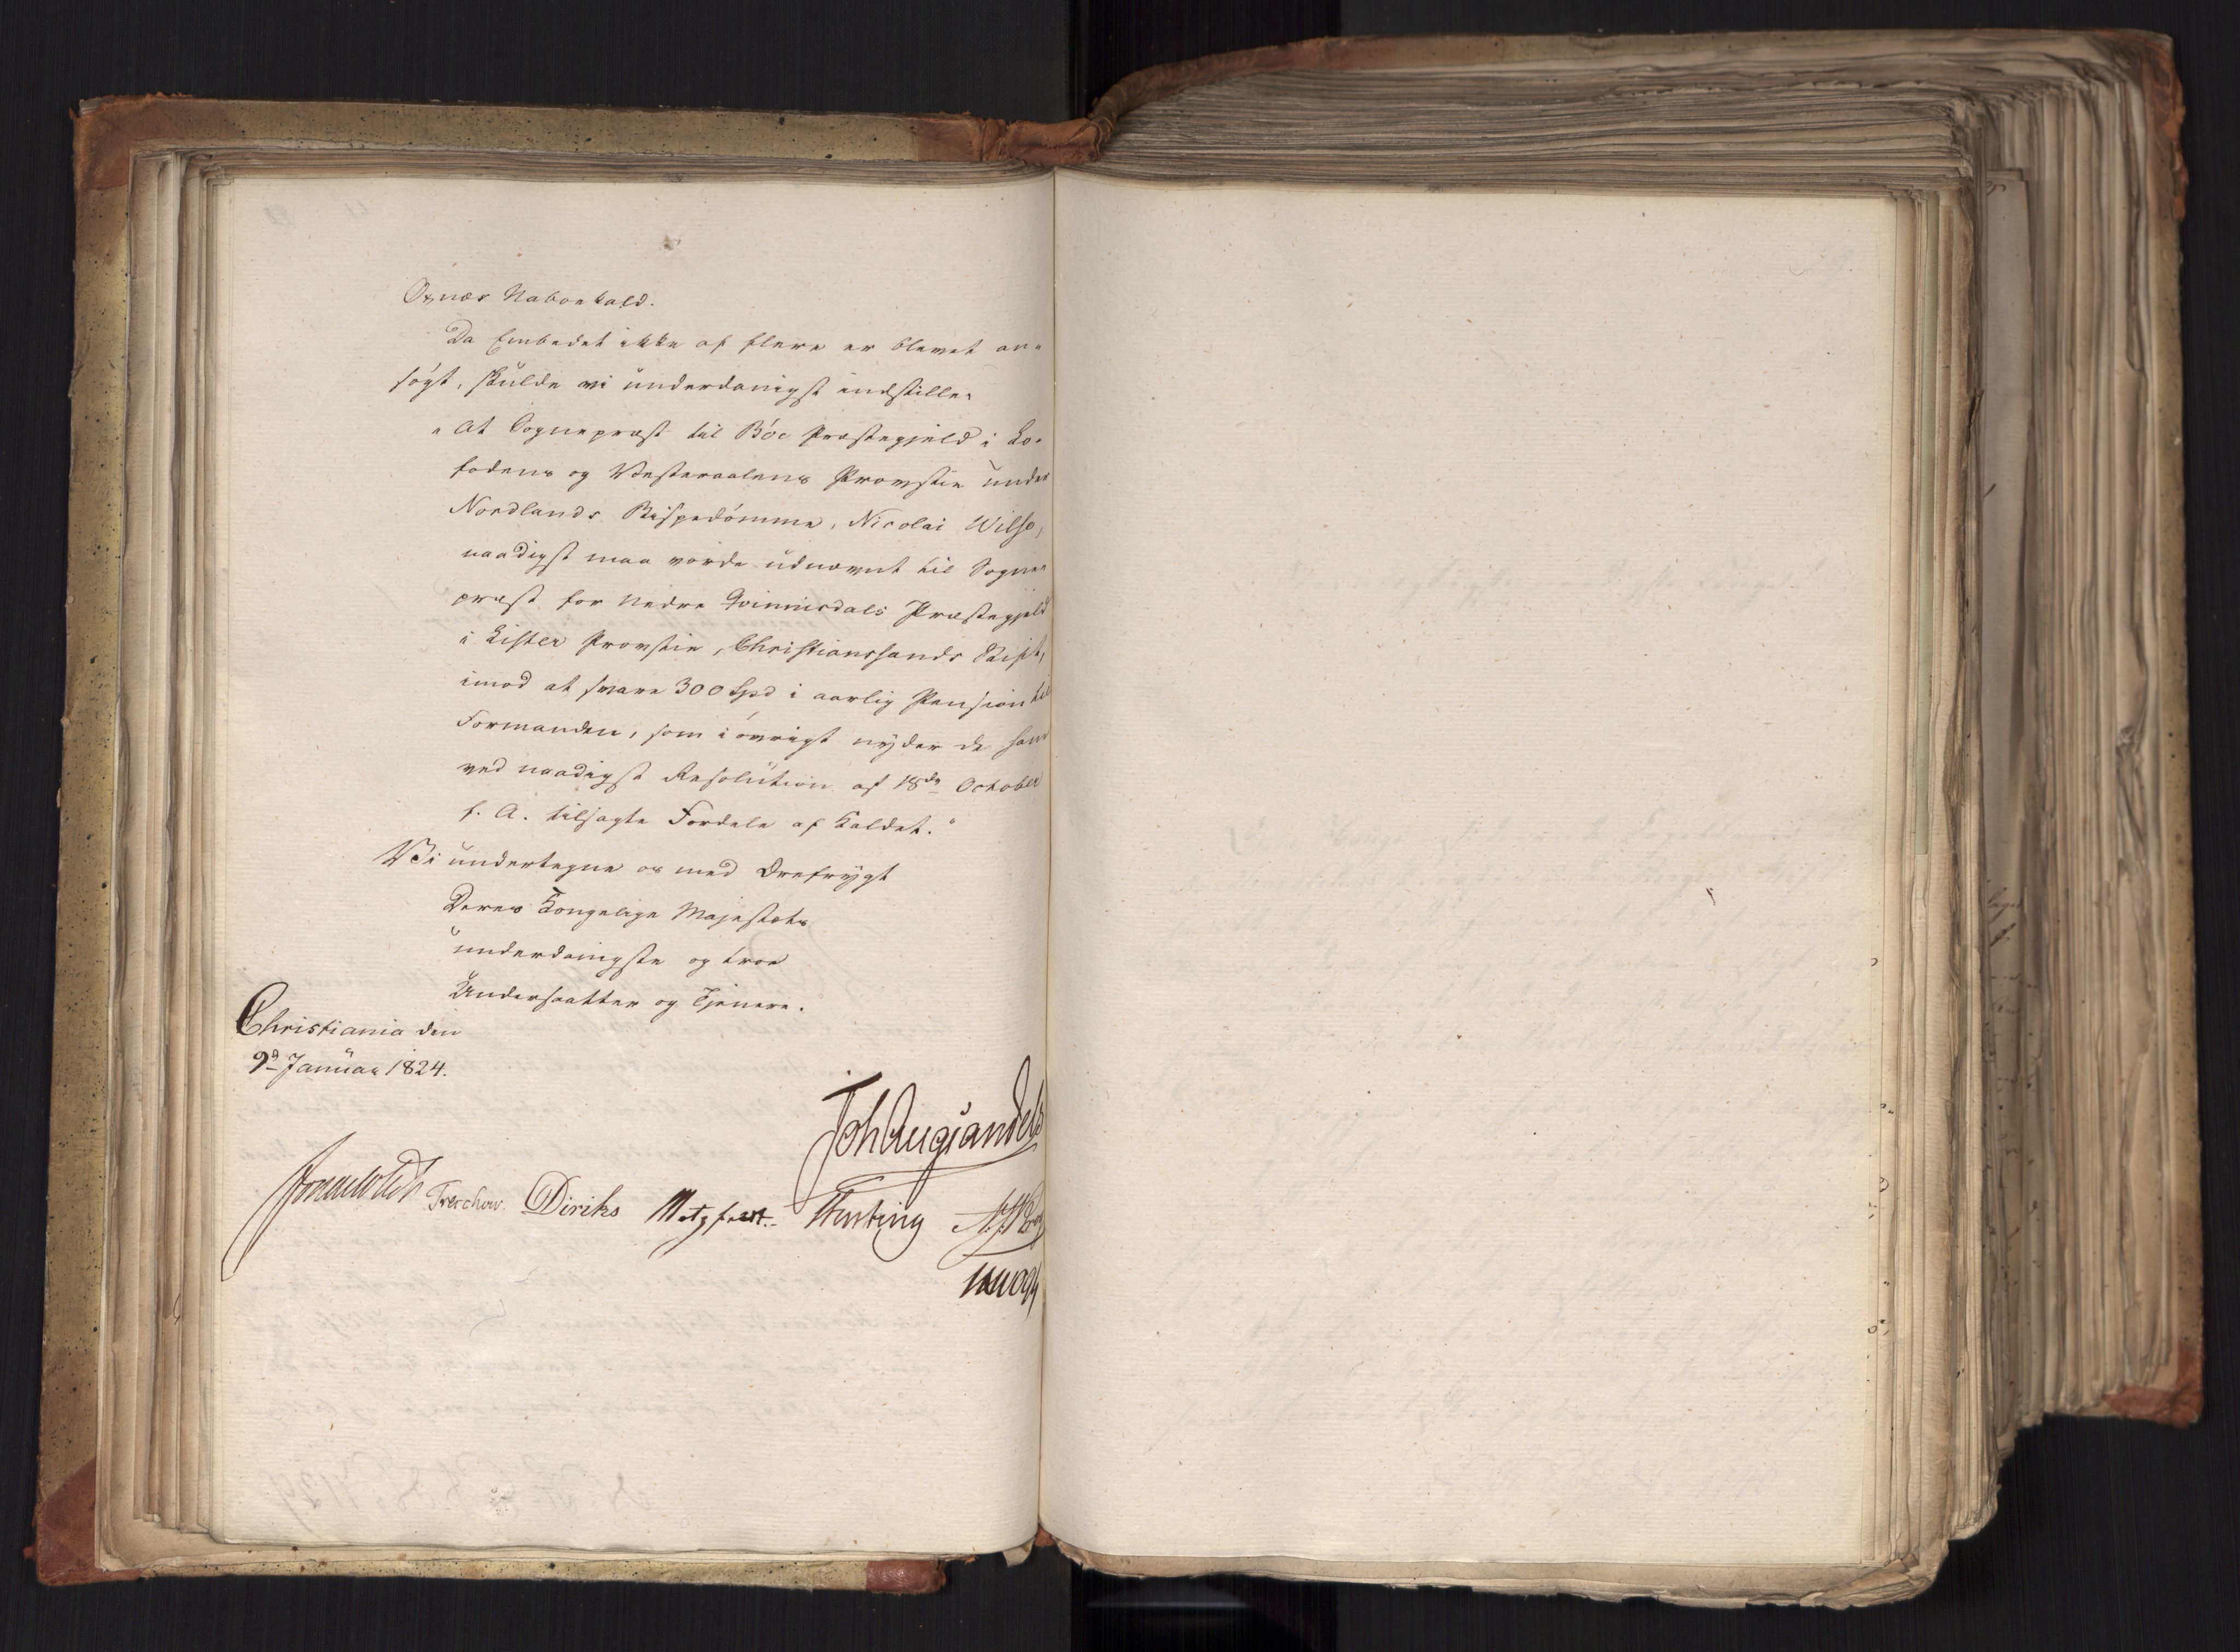 Oxnæs Nabovkald.
Da Embedet ikke af flere er blevet an-
søgt, skulde vi underdanigst indstille:
"At Sognepræst til Böe Præstegjeld i Lo-
fodens og Vesteraalens Provstie under
Nordlands Bispedömme, Nicolai Wilse,
naadigst maa vorde udnævnt til Sogne-
præst for Nedre Qvinnisdals Præstegjeld
i Lister Provstie, Christianssands Stift,
imod at svare 300 Spd i aarlig Pension til
Formanden, som iövrigt nyder de ham
ved naadigst Resolution af 18de October
f. A. tilsagte Fordele af Kaldet."
Vi undertegne os med Ærefrygt
Deres Kongelige Majestæts
underdanigste og troe
Undersaatter og Tjenere.
Christiania den
9d Januar 1824.
Joh Aug Sandels
Treschow Diriks Motzfeldt